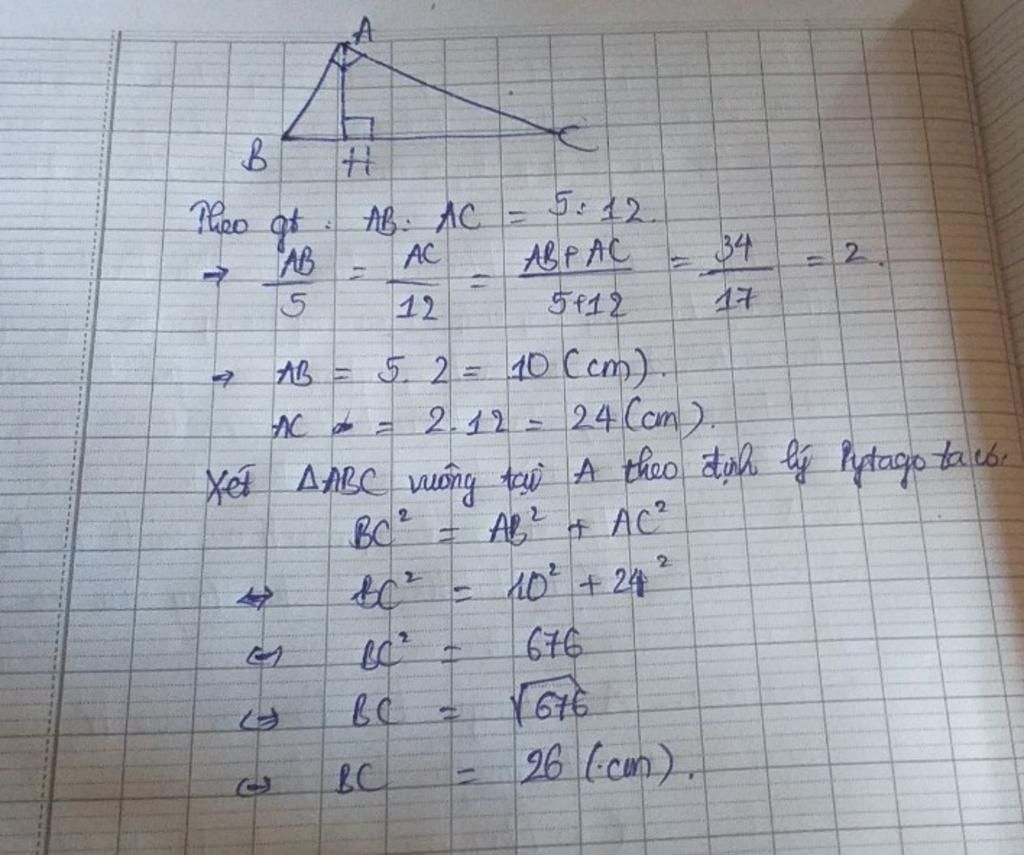 A
B H C
Theo gt : AB : AC = 5 : 12.
→ AB/5 = AC/12 = AB+AC/5+12 = 34/17 = 2.
→ AB = 5. 2 = 10 (cm).
AC = 2.12 = 24 (cm).
Xét ΔABC vuông tại A theo định lý Pytago ta có:
BC² = AB² + AC²
⇔ BC² = 10² + 24²
⇔ BC² = 676
⇔ BC = √676
⇔ BC = 26 (cm).